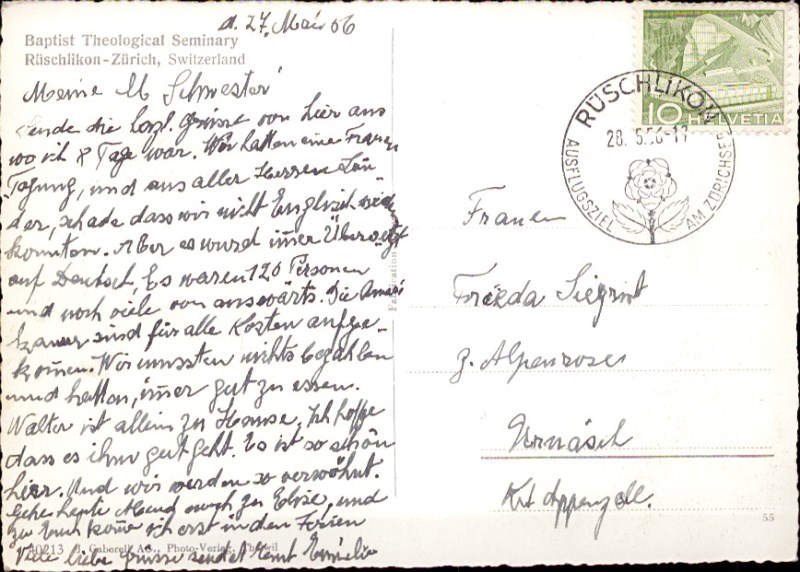 d. 27. Mai 56
Baptist Theological Seminary
Rüschlikon-Zürich, Switzerland
Meine lb Schwester
Sende die herzl. Grüsse von hier aus
wo ich 8 Tage war. Wir hatten eine Frauen
Tagung, und aus aller Herren Län-
der, schade dass wir nicht Englisch
konnten. Aber es wurd im̅er Übersetzt
auf Deutsch, Es waren 120 Personen
und noch viele von auswärts. Die Ameri
kaner sind für alle Kosten aufge-
kom̅en. Wir mussten nichts bezahlen
und hatten, im̅er gut zu essen.
Walter ist allein zu Hause, Ich hoffe
dass es ihm gut geht. Es ist so schön
hier. Und wir werden so verwöhnt.
Gehe heute Abend noch zu Elise, und
zu Euch kom̅ ich erst in den Ferien
Viele liebe Grüsse sendet
40213 J. Gaberell AG., Photo-Verlag, Thalwil
HELVETIA
10
RÜSCHLIKON
28. 5.56-17
AUSFLUGSZIEL AM ZÜRICHSEE
Frauen
Frieda Siegrist
z. Alpenrose
Urnäsch
Kt Appenzell.
55